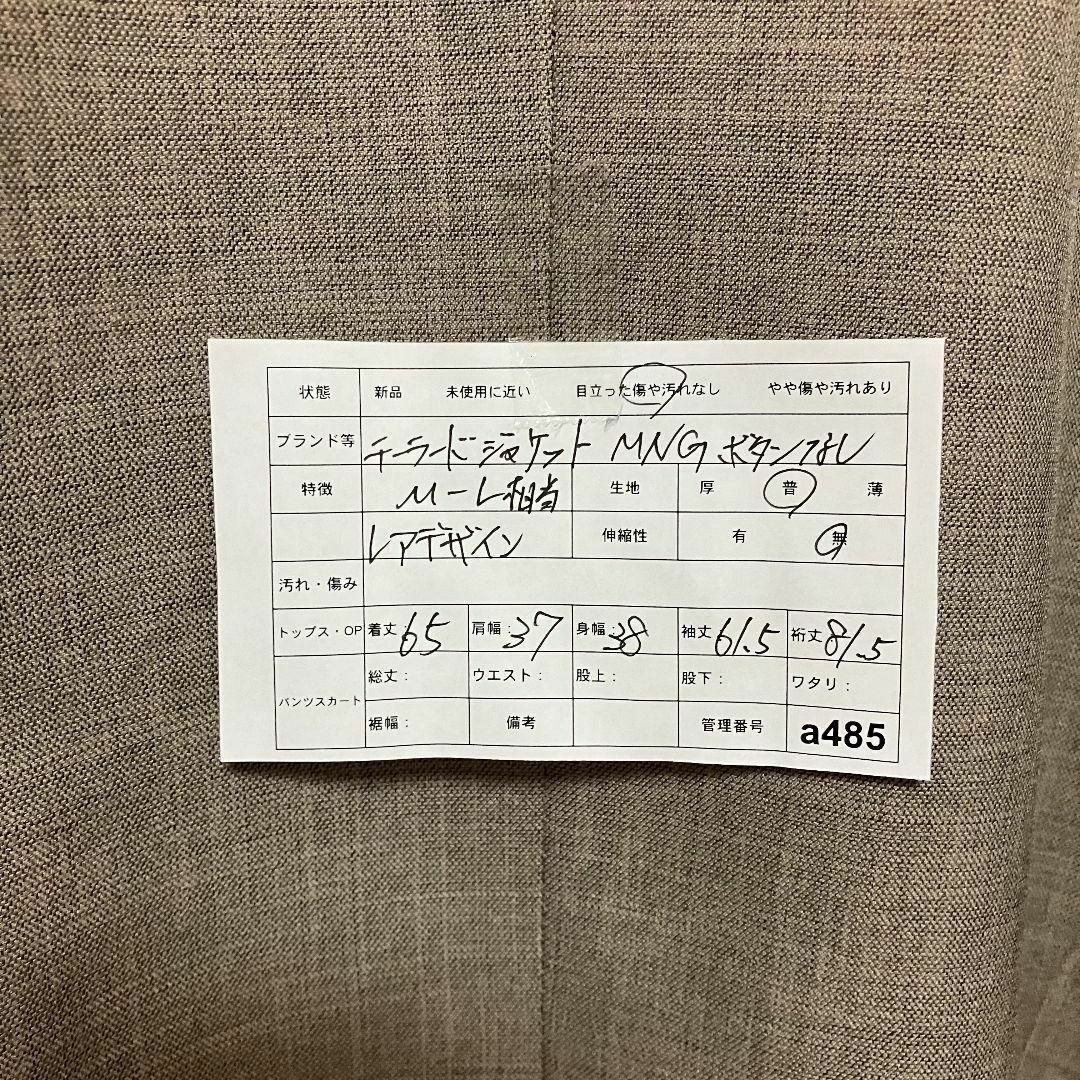 状態 新品 未使用に近い 目立った傷や汚れなし やや傷や汚れあり
ブランド等 テーラードジャケット MNG ボタンなし
特徴 M-L相当 生地 厚 普 薄
レアデザイン 伸縮性 有 無
汚れ・傷み
トップス・OP 着丈:65 肩幅:37 身幅:38 袖丈:61.5 裄丈:81.5
パンツスカート 総丈: ウエスト: 股上: 股下: ワタリ:
裾幅: 備考 管理番号 a485